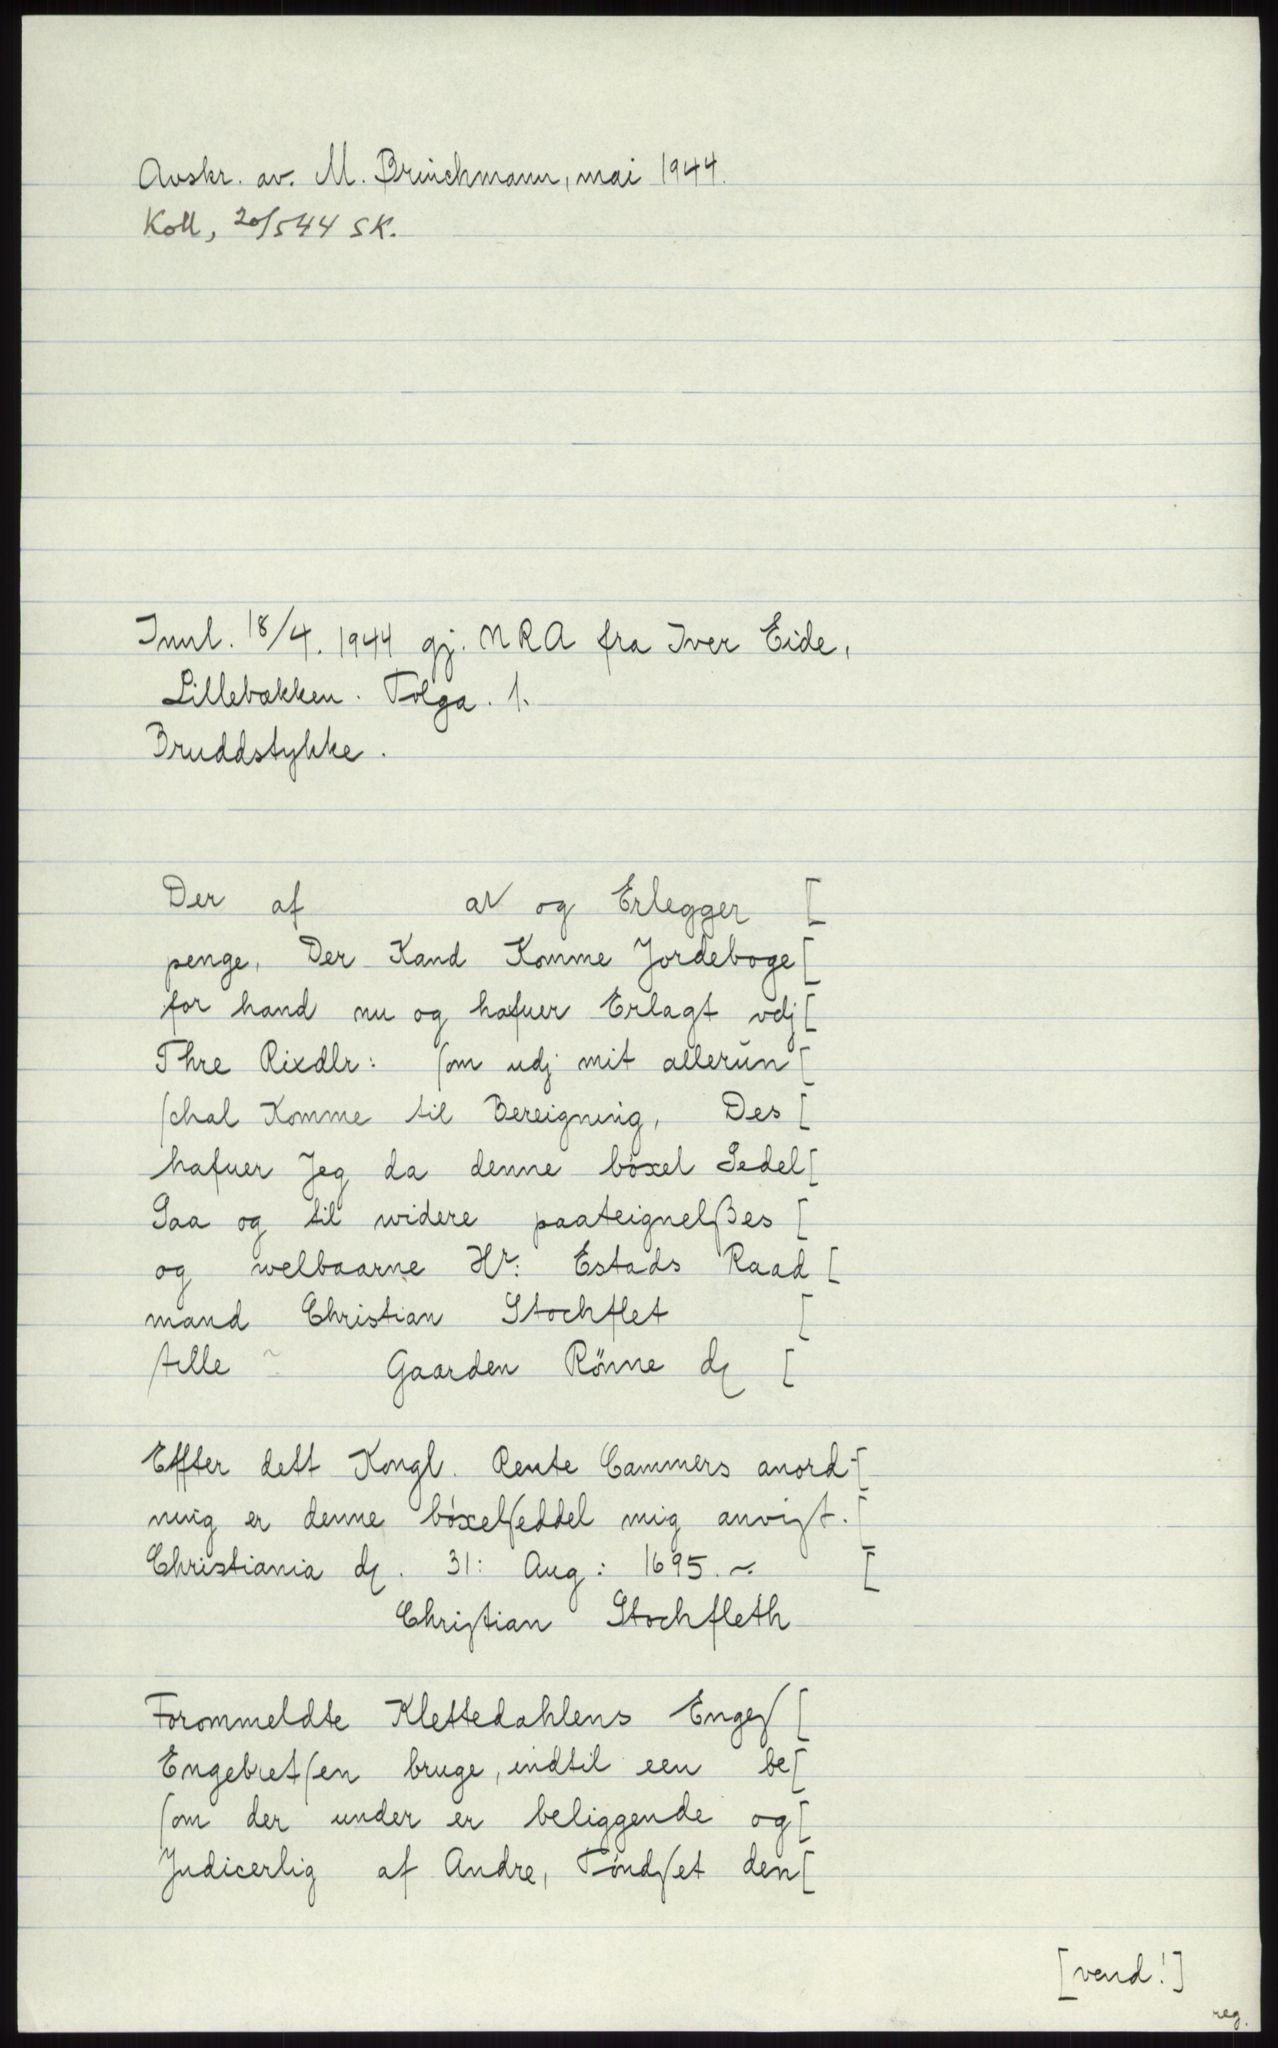 Avskr. av. M. Brinchmann, mai 1944.
Koll, 20/5 44 SK.
Innl. 18/4. 1944 gj. NRA fra Iver Eide,
Lillebakken. Tolga. 1.
Bruddstykke.
Der af aN og Erlegger [
penge, Der Kand Komme Jordeboge [
for hand nu og hafuer Erlagt vdj [
Thre Rixdlr: ſom udj mit allerun [
ſchal Komme til Bereigning, Des [
hafuer Jeg da denne bóxel Sedel [
Saa og til widere paateignelſes [
og welbaarne Hr: Estads Raad [
mand Christian Stochflet [
ſtille Gaarden Rönne dɣ [
Effter dett Kongl. Rente Cammers anord- [
ning er denne bóxelſeddel mig anviſt. [
Christiania dɣ. 31: Aug: 1695. ~
[
Chriſtian Stochfleth
Forommeldte Klettedahlens Engeſ [
Engebretſen bruge, indtil een be [
ſom der under er beliggende og [
Judicerlig af Andre, Tóndſet den [
[vend!]
reg.